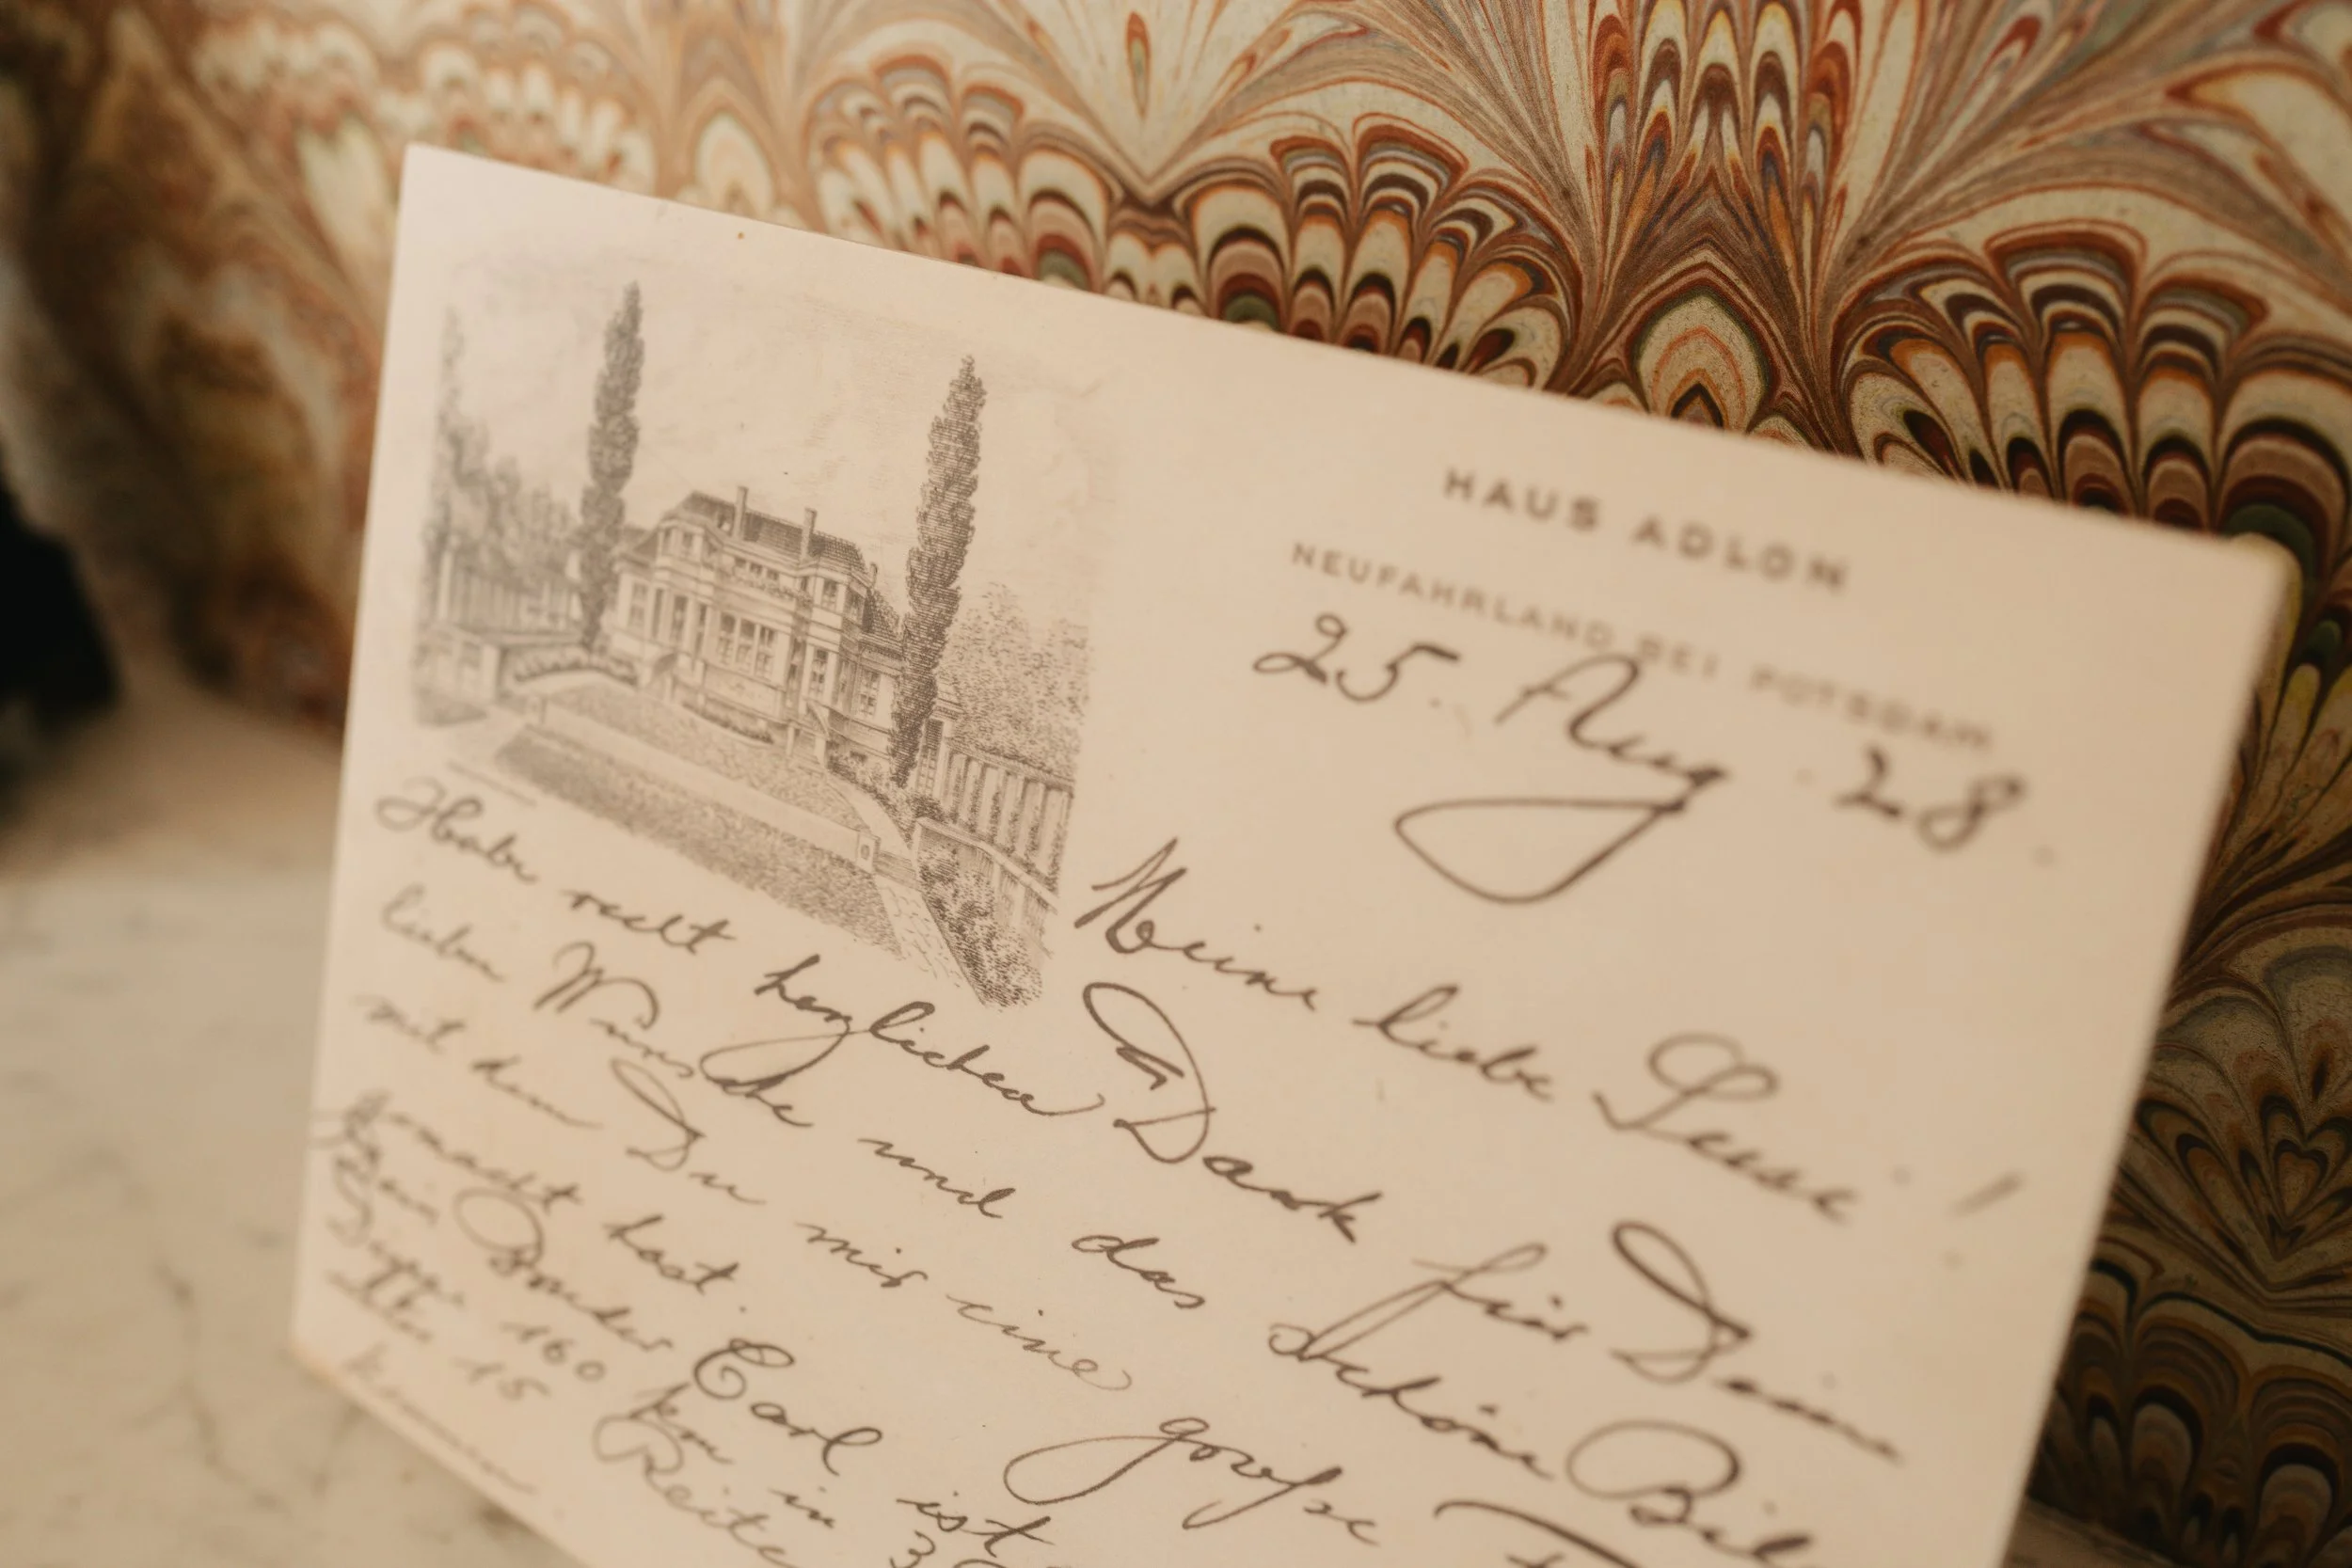 HAUS ADLON
NEUFAHRLAND BEI POTSDAM
25. Aug. 28.
Meine liebe Susi!
Habe recht herzlichen Dank für Deine
lieben Wünsche und das schöne Bil
mit dem Du mir eine große
gemacht hast.
Dein Bruder Carl ist
160 km in 3
15 Reite